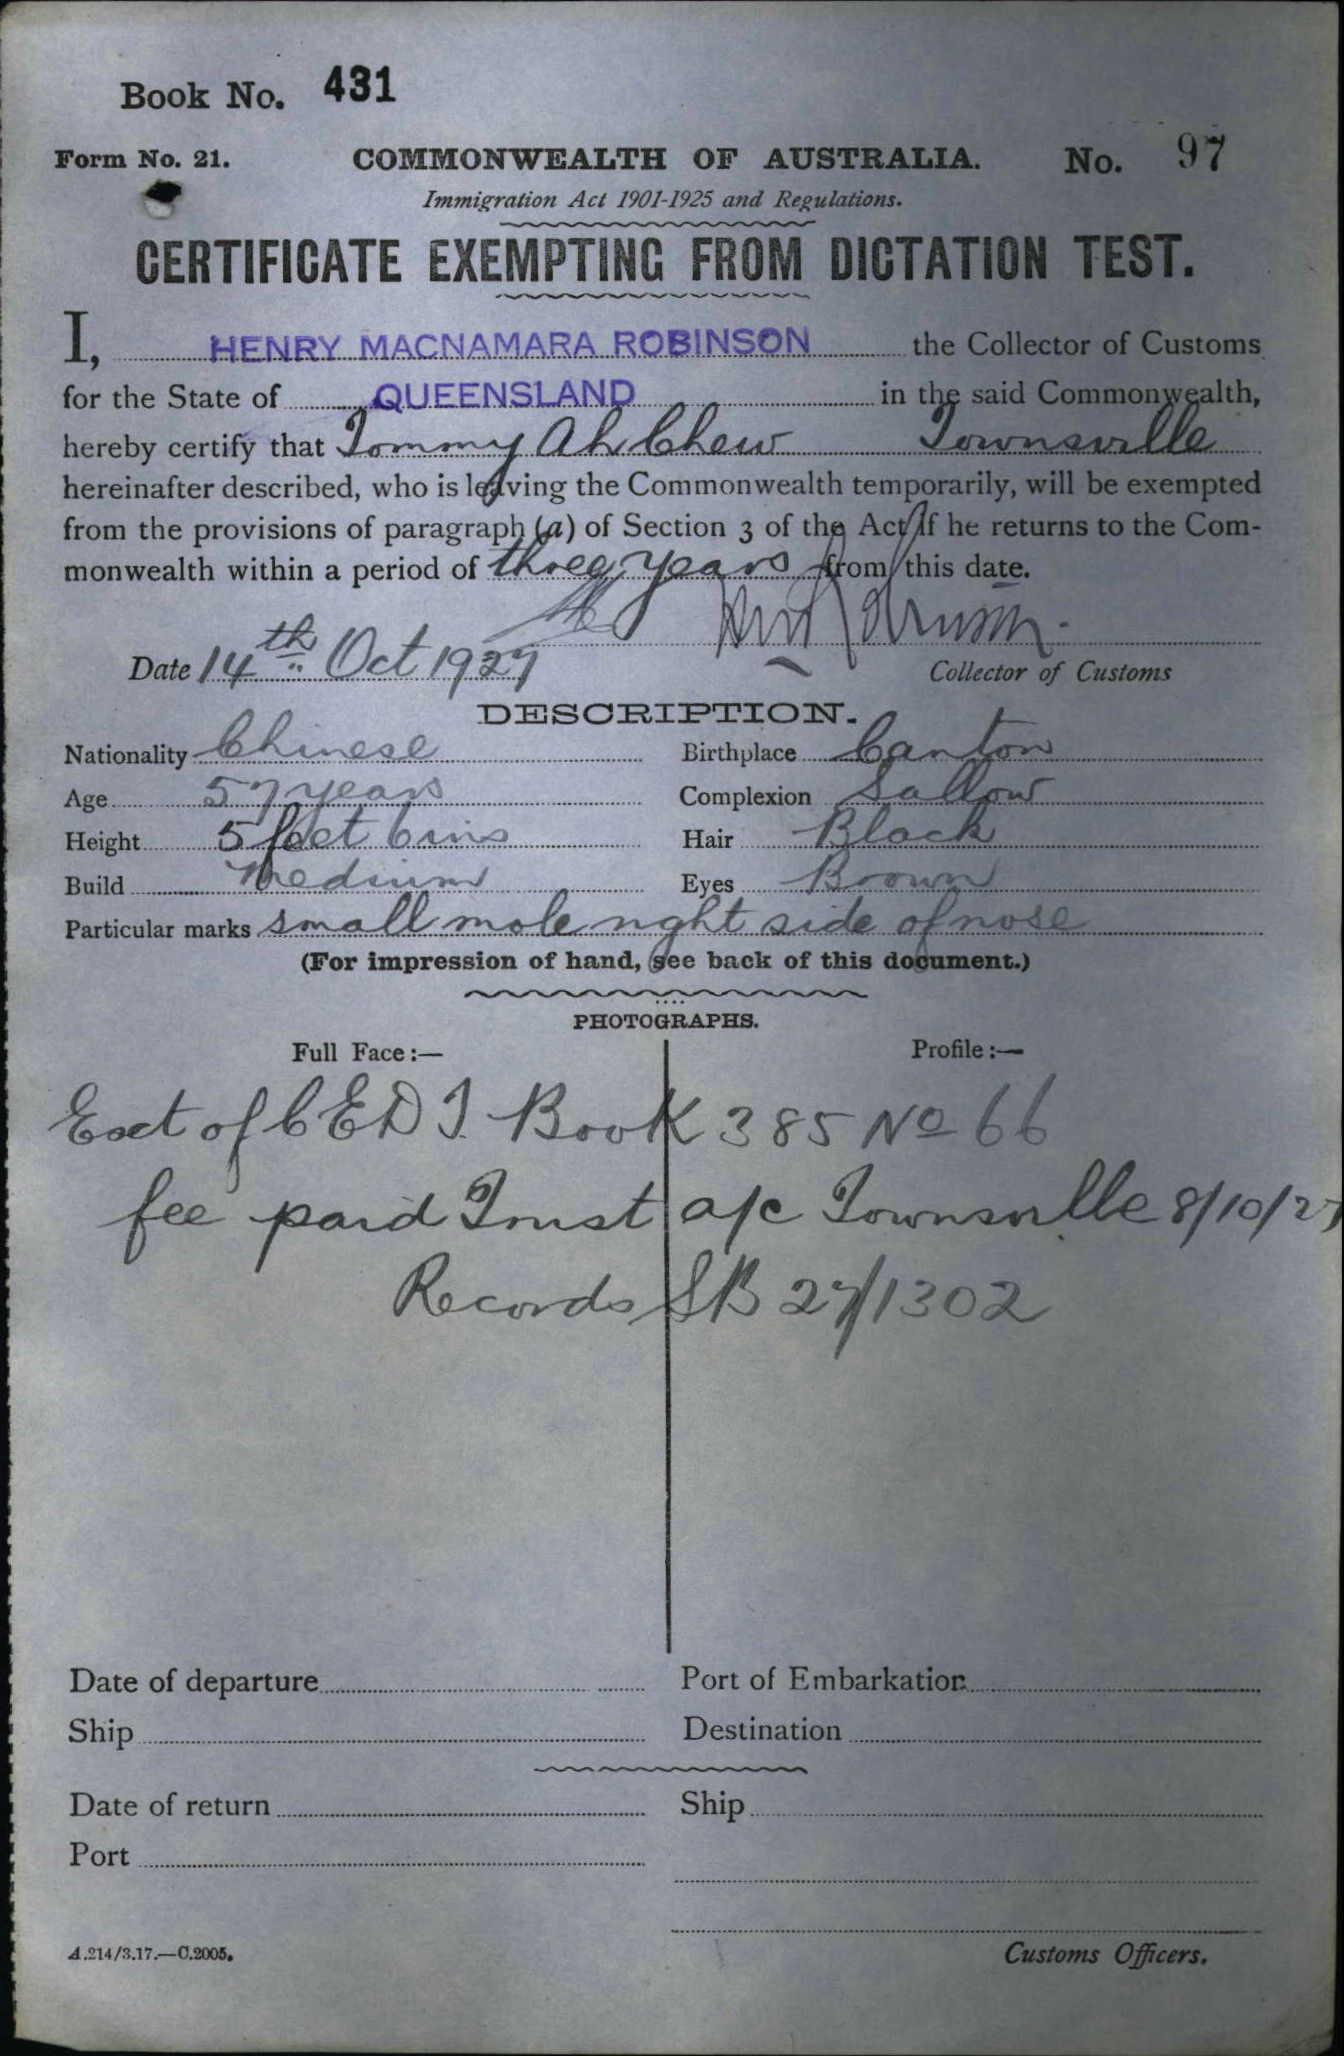 Book No. 431
Form No. 21. COMMONWEALTH OF AUSTRALIA. No. 97
Immigration Act 1901-1925 and Regulations.
CERTIFICATE EXEMPTING FROM DICTATION TEST.
I, HENRY MACNAMARA ROBINSON the Collector of Customs
for the State of QUEENSLAND in the said Commonwealth,
hereby certify that Tommy Ah Chew Townsville
hereinafter described, who is leaving the Commonwealth temporarily, will be exempted
from the provisions of paragraph (a) of Section 3 of the Act if he returns to the Com-
monwealth within a period of three years from this date.
Date 14th Oct 1927 Collector of Customs
DESCRIPTION.
Nationality Chinese Birthplace Canton
Age 57 years Complexion Sallow
Height 5 feet 6 ins Hair Black
Build Medium Eyes Brown
Particular marks small mole right side of nose
(For impression of hand, see back of this document.)
PHOTOGRAPHS.
Full Face:— Profile:—
Ext of CEDT Book 385 No 66
fee paid Trust a/c Townsville 8/10/27
Records SB 27/1302
Date of departure Port of Embarkation
Ship Destination
Date of return Ship
Port
A.214/3.17.—C.2005. Customs Officers.